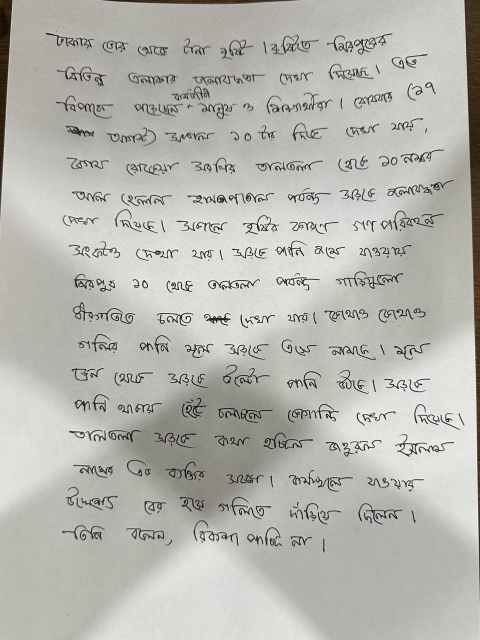 ঢাকায় ভোর থেকে টানা বৃষ্টি। বৃষ্টিতে মিরপুরের
বিভিন্ন এলাকায় জলাবদ্ধতা দেখা দিয়েছে। এতে
বিপাকে পড়েছেন কর্মজীবী মানুষ ও শিক্ষার্থীরা। রোববার (১৭
আগস্ট) সকাল ১০ টার দিকে দেখা যায়,
বেগম রোকেয়া সরণির তালতলা থেকে ১০ নম্বর
আল হেলাল হাসপাতাল পর্যন্ত সড়কে জলাবদ্ধতা
দেখা দিয়েছে। সকালে বৃষ্টির কারণে গণ পরিবহন
সংকটও দেখা যায়। সড়কে পানি জমে যাওয়ায়
মিরপুর ১০ থেকে তালতলা পর্যন্ত গাড়িগুলো
ধীরগতিতে চলতে দেখা যায়। কোথাও কোথাও
গলির পানি মূল সড়কে এসে নামছে। মূল
ড্রেন থেকে সড়কে উল্টো পানি উঠছে। সড়কে
পানি থাকায় হেঁটে চলাচলে ভোগান্তি দেখা দিয়েছে।
তালতলা সড়কে কথা হচ্ছিল জহুরুল ইসলাম
নামের এক ব্যক্তির সঙ্গে। কর্মস্থলে যাওয়ার
উদ্দেশ্যে বের হয়ে গলিতে দাঁড়িয়ে ছিলেন।
তিনি বলেন, রিকশা পাচ্ছি না।